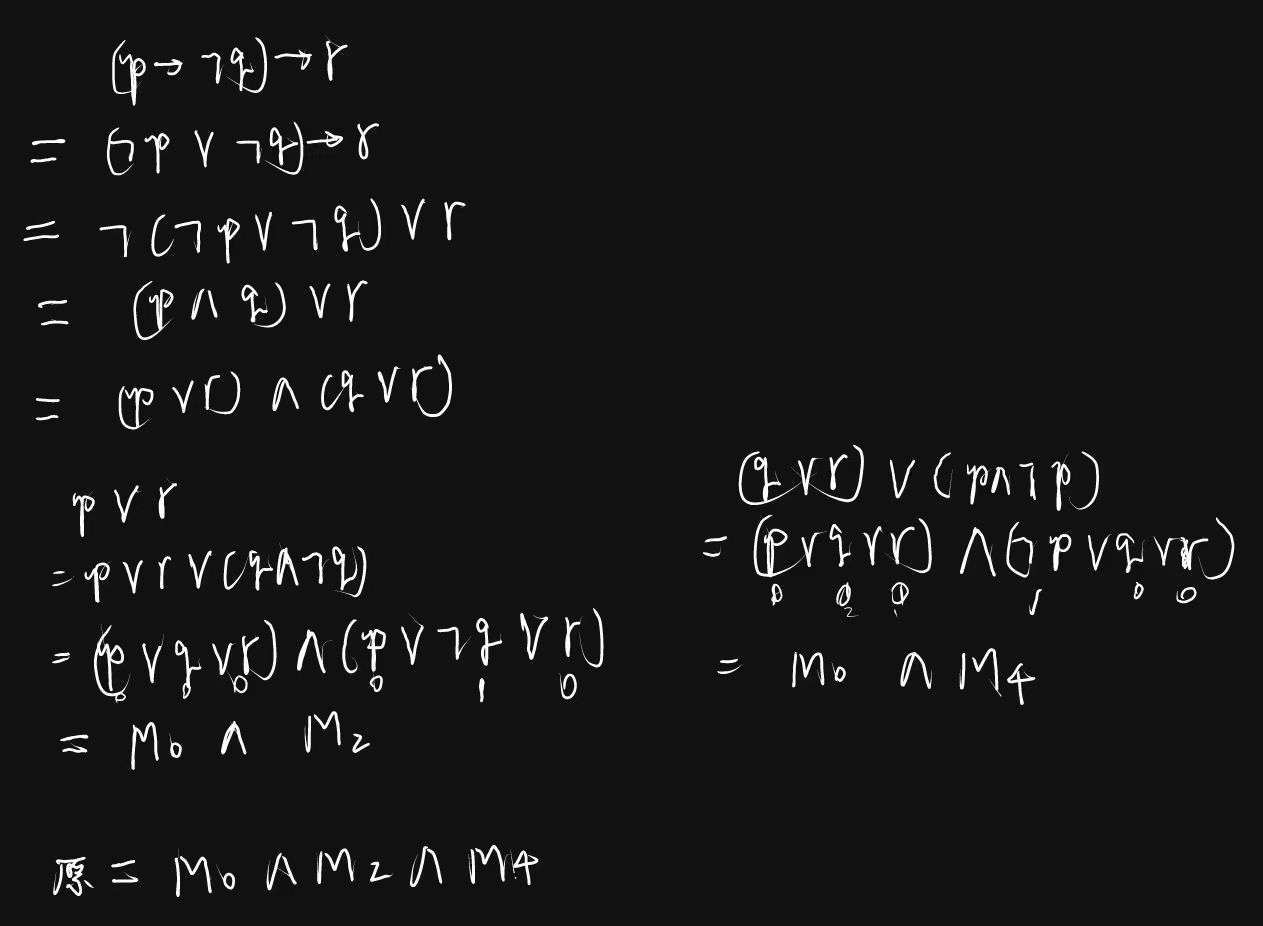 (p→¬q)→r
= (¬p∨¬q)→r
= ¬(¬p∨¬q)∨r
= (p∧q)∨r
= (p∨r)∧(q∨r)
p∨r
=p∨r∨(q∧¬q)
=(p∨q∨r)∧(p∨¬q∨r)
0 0 0 0 1 0
= M₀ ∧ M₂
(q∨r)∨(p∧¬p)
=(p∨q∨r)∧(¬p∨q∨r)
0 0 0 1 0 0
2 1
= M₀ ∧ M₄
原 = M₀ ∧ M₂ ∧ M₄